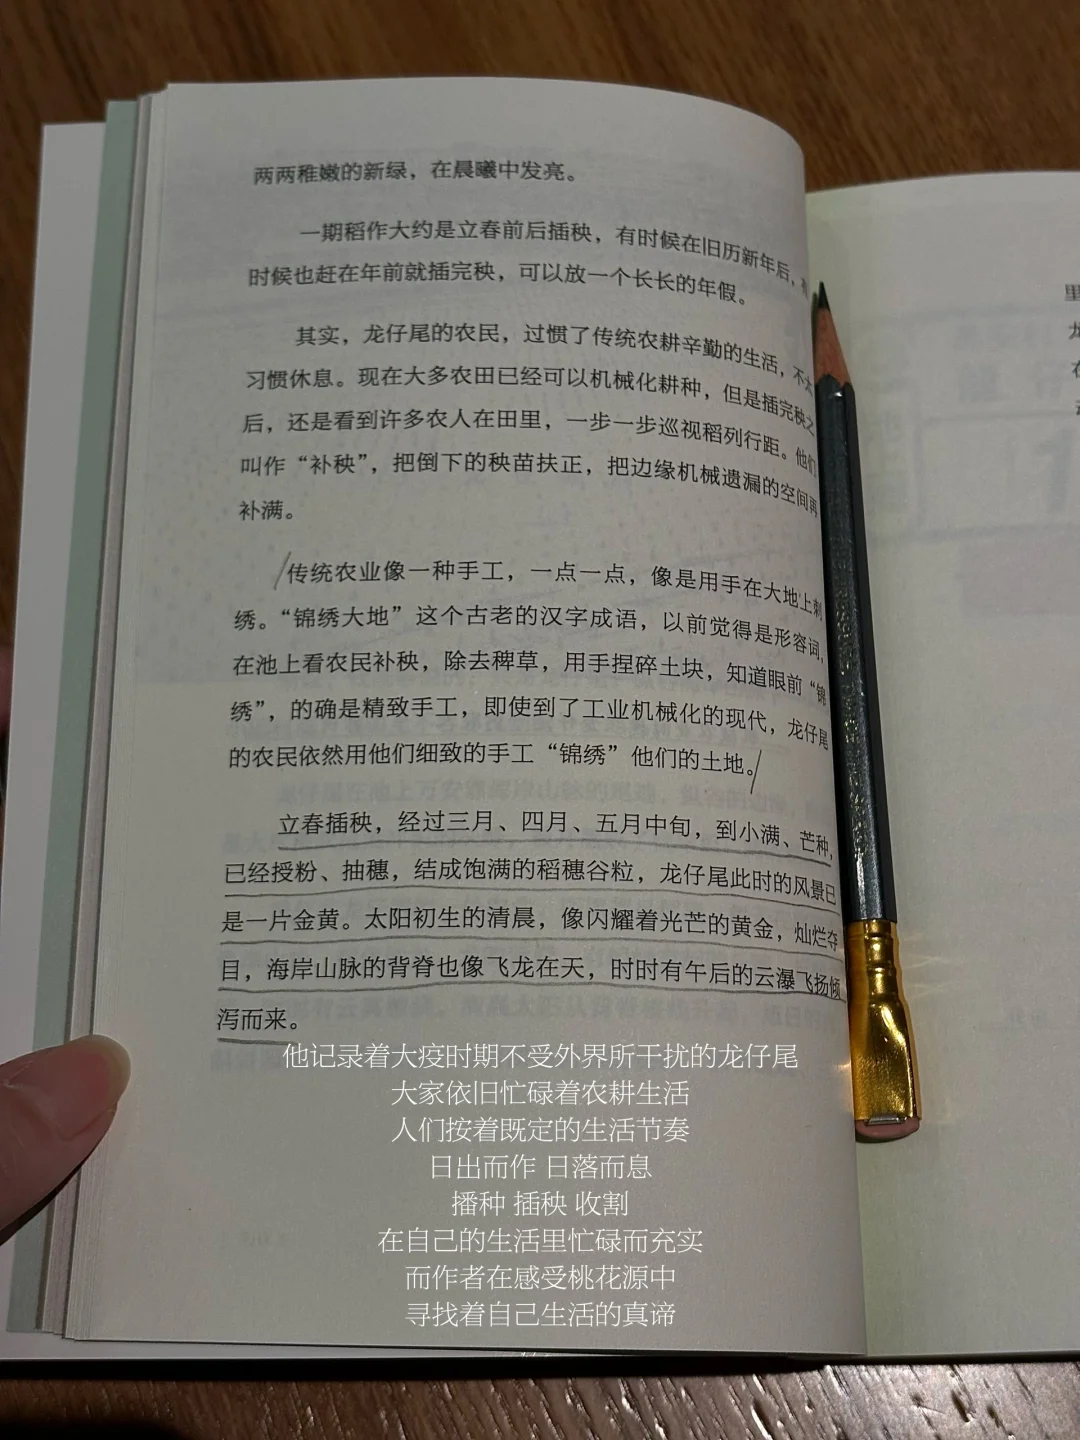 两两稚嫩的新绿，在晨曦中发亮。
一期稻作大约是立春前后插秧，有时候在旧历新年后，有
时候也赶在年前就插完秧，可以放一个长长的年假。
其实，龙仔尾的农民，过惯了传统农耕辛勤的生活，不太
习惯休息。现在大多农田已经可以机械化耕种，但是插完秧之
后，还是看到许多农人在田里，一步一步巡视稻列行距。他们
叫作“补秧”，把倒下的秧苗扶正，把边缘机械遗漏的空间再
补满。
传统农业像一种手工，一点一点，像是用手在大地上刺
绣。“锦绣大地”这个古老的汉字成语，以前觉得是形容词，
在池上看农民补秧，除去稗草，用手捏碎土块，知道眼前“锦
绣”，的确是精致手工，即使到了工业机械化的现代，龙仔尾
的农民依然用他们细致的手工“锦绣”他们的土地。
立春插秧，经过三月、四月、五月中旬，到小满、芒种，
已经授粉、抽穗，结成饱满的稻穗谷粒，龙仔尾此时的风景已
是一片金黄。太阳初生的清晨，像闪耀着光芒的黄金，灿烂夺
目，海岸山脉的背脊也像飞龙在天，时时有午后的云瀑飞扬倾
泻而来。
他记录着大疫时期不受外界所干扰的龙仔尾
大家依旧忙碌着农耕生活
人们按着既定的生活节奏
日出而作 日落而息
播种 插秧 收割
在自己的生活里忙碌而充实
而作者在感受桃花源中
寻找着自己生活的真谛
里
在